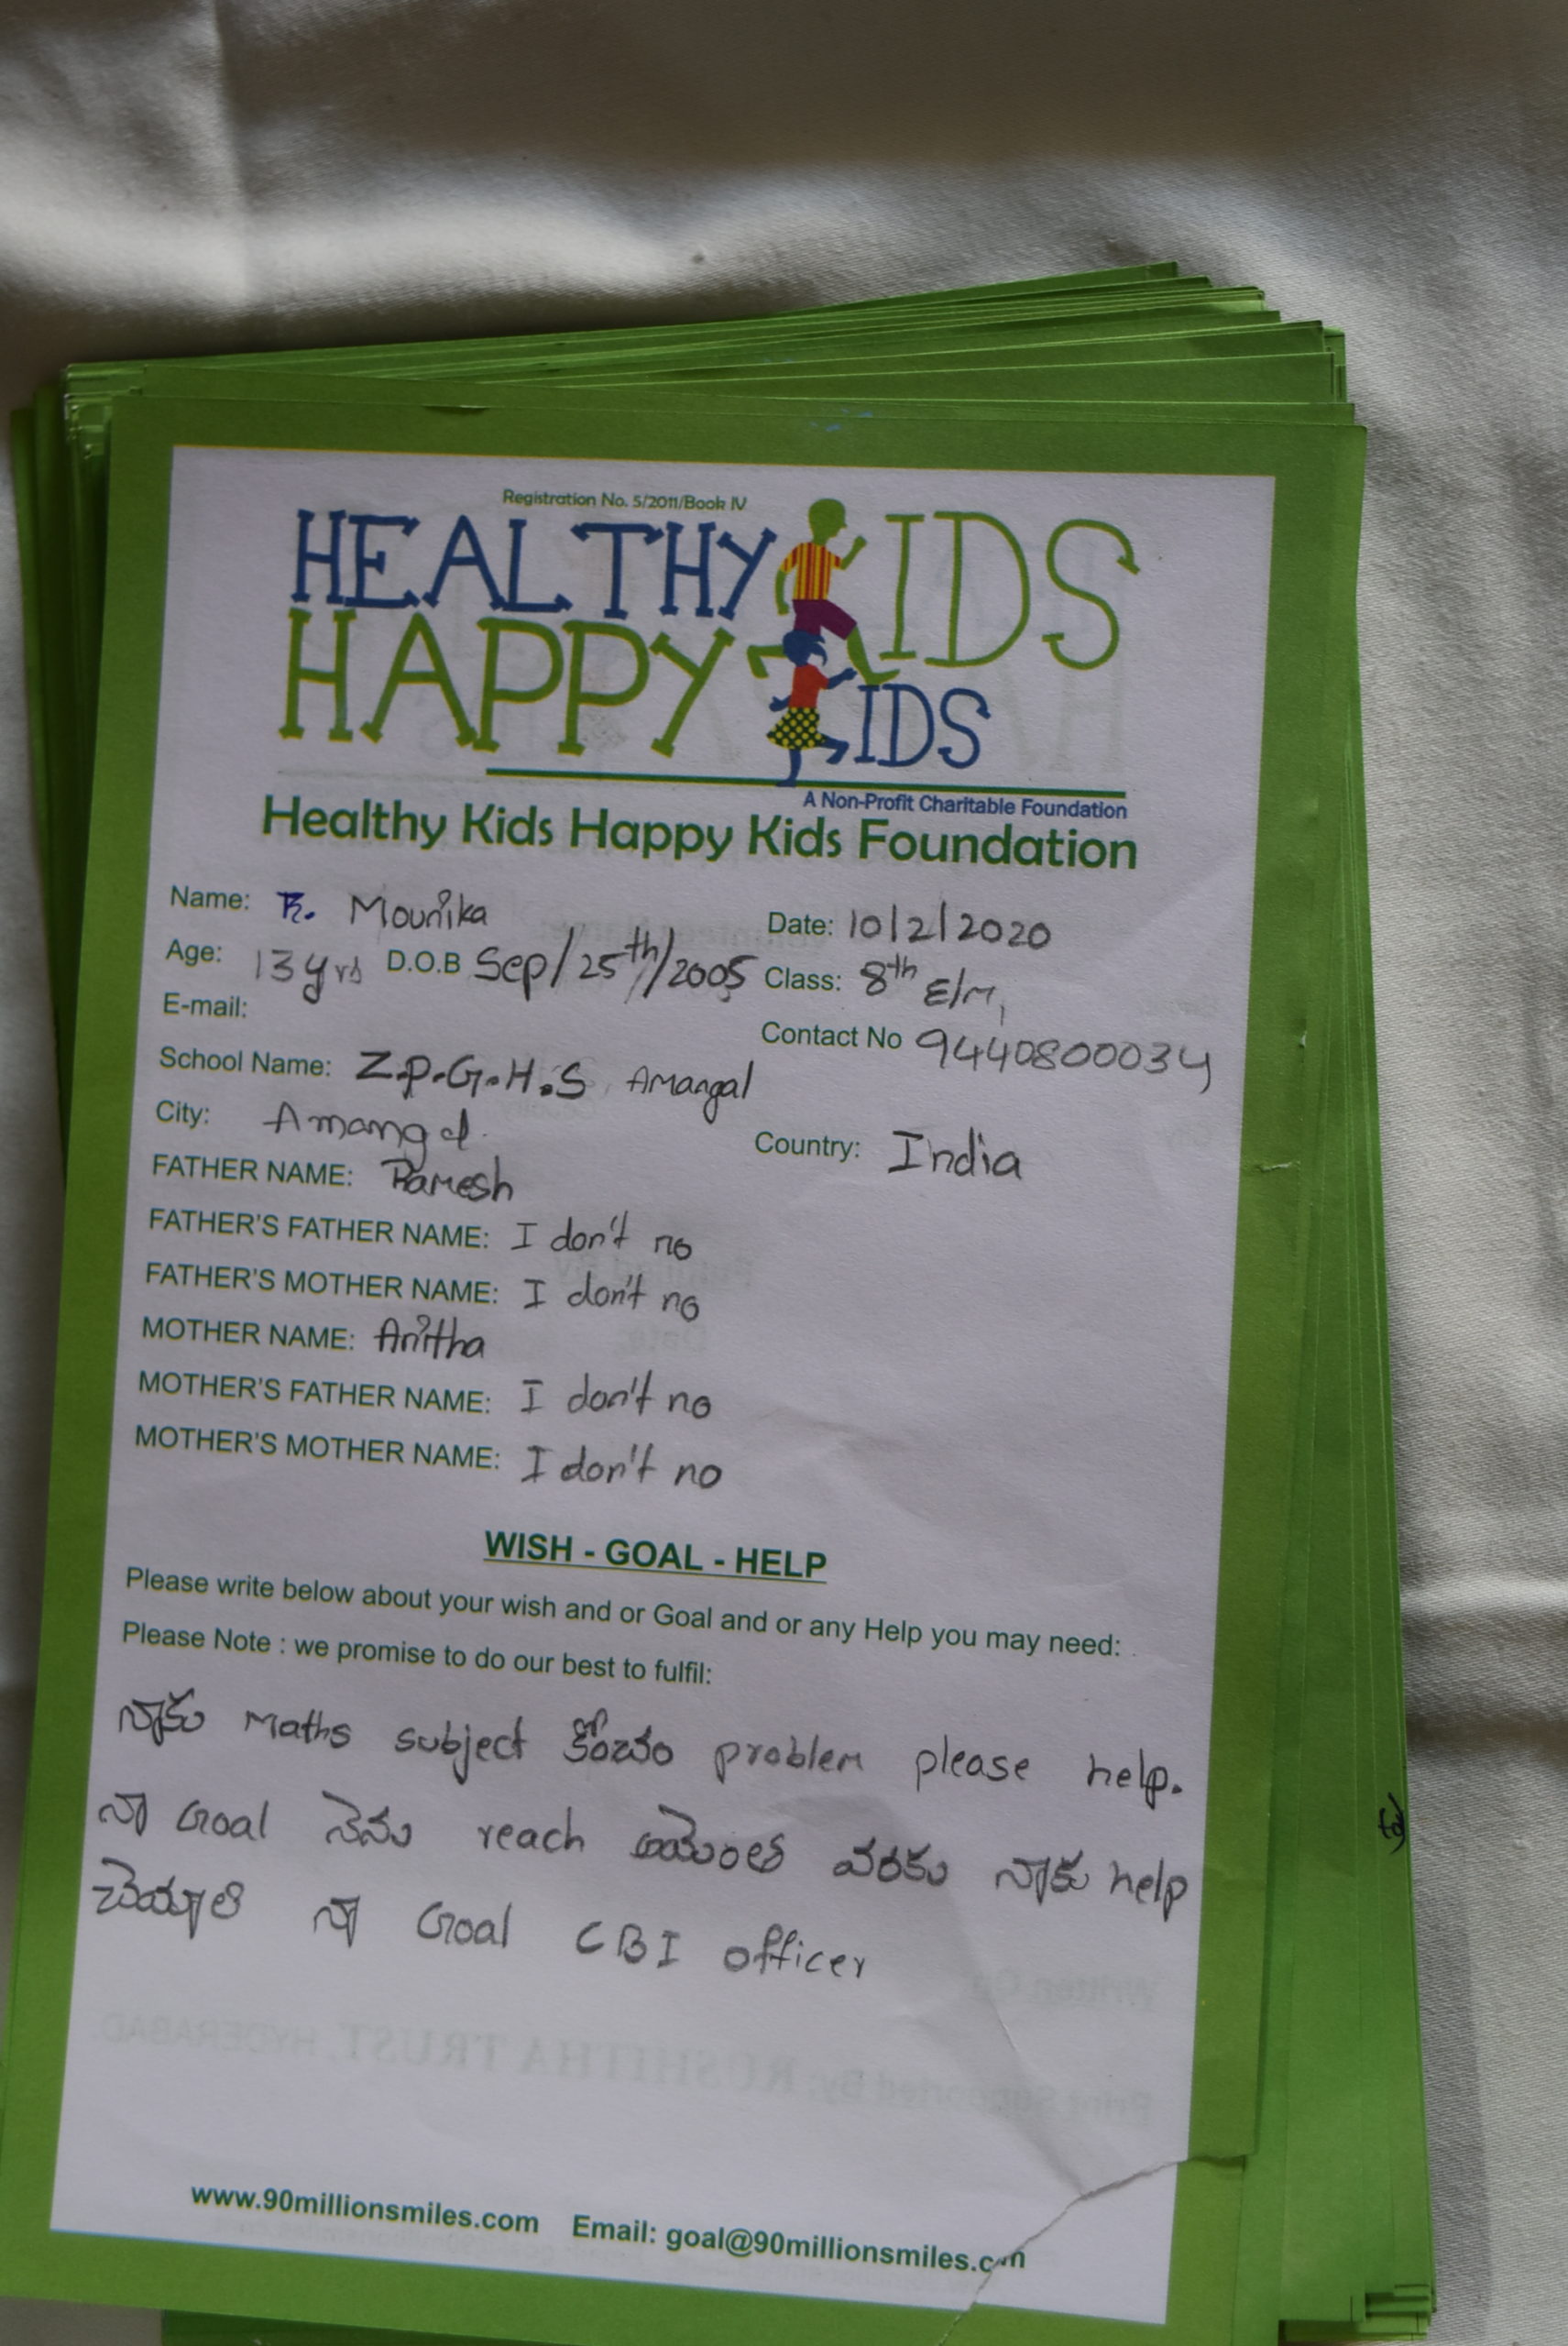 Registration No. 5/2011/Book IV
HEALTHY KIDS
HAPPY KIDS
A Non-Profit Charitable Foundation
Healthy Kids Happy Kids Foundation
Name: R. Mounika Date: 10/2/2020
Age: 13 yrs D.O.B Sep/25th/2005 Class: 8th E/M,
E-mail: Contact No 9440800034
School Name: Z.P.G.H.S, Amangal
City: Amangal. Country: India
FATHER NAME: Ramesh
FATHER'S FATHER NAME: I don't no
FATHER'S MOTHER NAME: I don't no
MOTHER NAME: Anitha
MOTHER'S FATHER NAME: I don't no
MOTHER'S MOTHER NAME: I don't no
WISH - GOAL - HELP
Please write below about your wish and or Goal and or any Help you may need:
Please Note : we promise to do our best to fulfil:
నాకు Maths subject problem please help.
నా Goal నెను reach అయెంత వరకు నాకు help
చెయాలి నా Goal CBI officer
www.90millionsmiles.com Email: goal@90millionsmiles.com